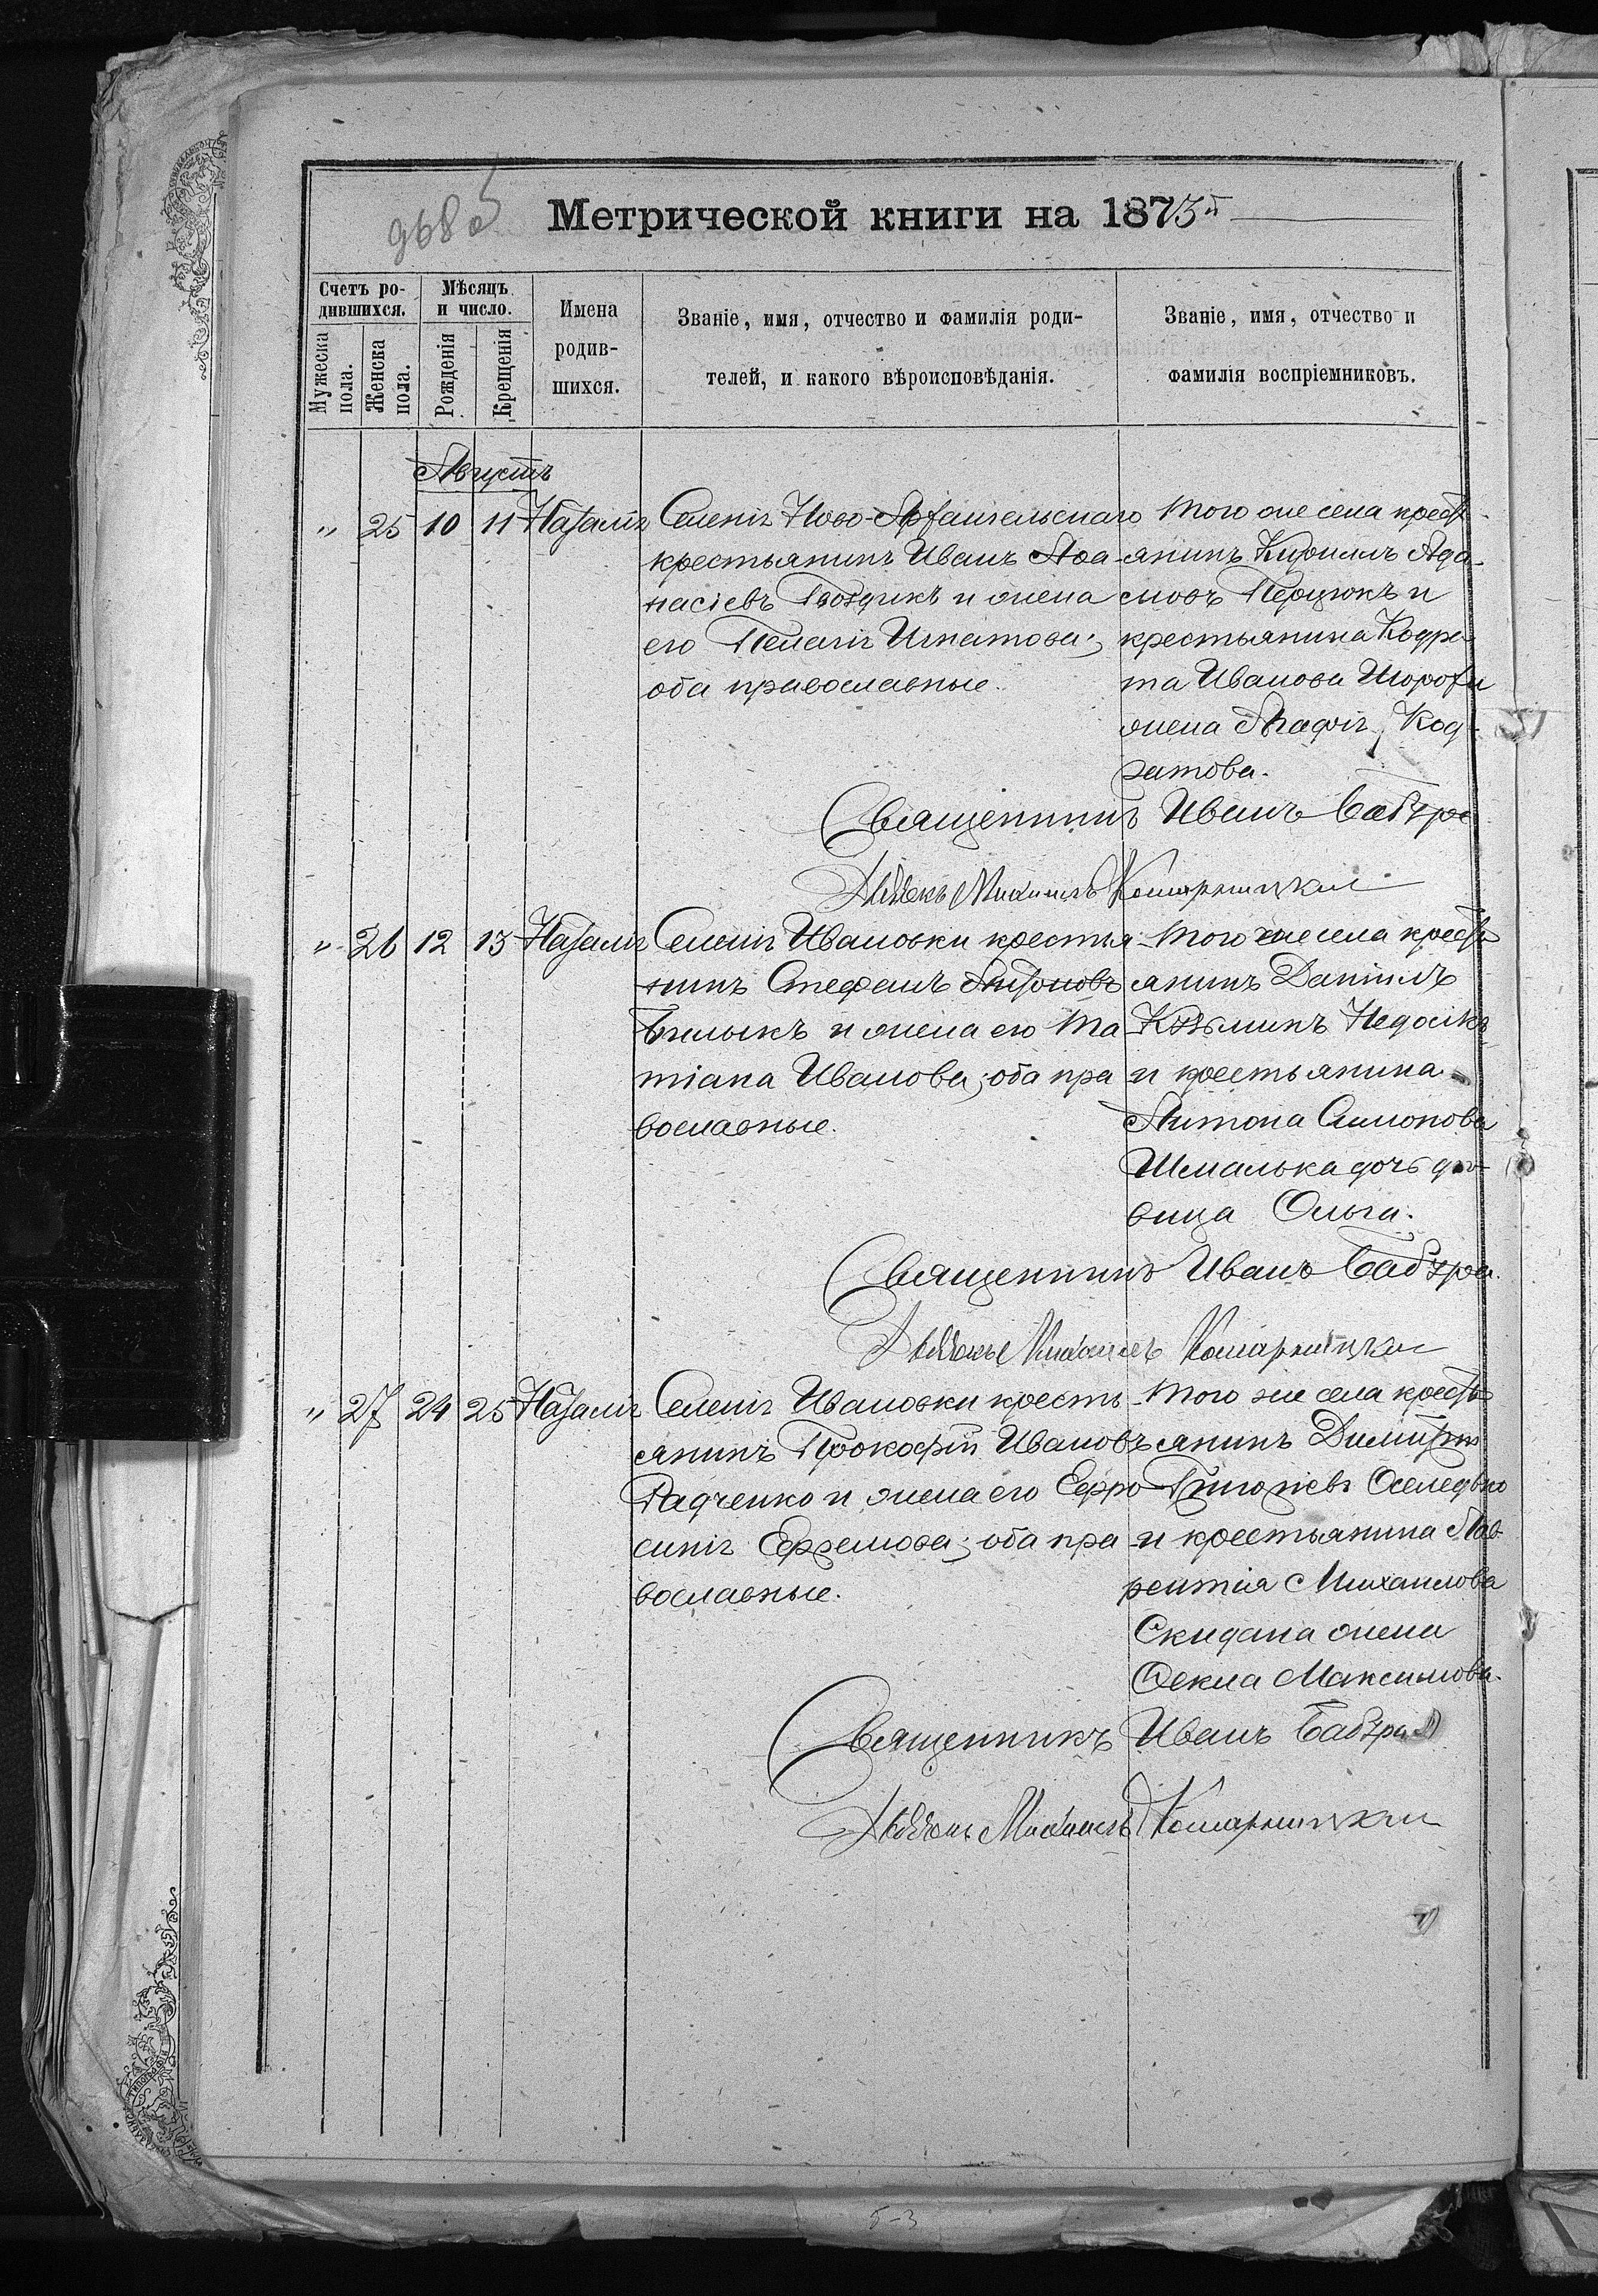 968 об
Метрической книги на 1873й
Счетъ ро-
дившихся.
Мѣсяцъ
и число.
Имена
родив-
шихся.
Званіе, имя, отчество и фамилія роди-
телей, и какого вѣроисповѣданія.
Званіе, имя, отчество и
фамилія воспріемниковъ.
Мужеска
пола.
Женска
пола.
Рожденія
Крещенія
Августъ
„ 25 10 11 Наталія
Селенія Ново-Архангельскаго
крестьянинъ Иванъ Аѳа-
насіевъ Гвоздикъ и жена
его Пелагія Игнатова;
оба православные.
Того же села крест
янинъ Кирилъ Ада-
мовъ Перцюкъ и
крестьянина Кодра-
та Иванова
жена Агафія Код-
ратова.
Священникъ Иванъ Бабура
Михаилъ Комарницкій
„ 26 12 13 Наталія
Селенія Ивановки крестья
нинъ Стефанъ Антоновъ
Билыкъ и жена его Та
тіана Иванова; оба пра
вославные.
Того же села кресть
янинъ Даніилъ
Козьминъ
и крестьянина
Антона Симонова
Шмалька дочь дѣ-
вица Ольга.
Священникъ Иванъ Бабура
Михаилъ Комарницкій
„ 27 24 25 Наталія
Селенія Ивановки кресть
янинъ Прокофій Ивановъ
Радченко и жена его Ефро
синія Ефремова; оба пра
вославные.
Того же села кресть
янинъ Димитрій
Григоріевъ Оселедько
и крестьянина Лав
рентія Михаилова
Скидана жена
Ѳекла Максимова.
Священникъ Иванъ Бабура
Михаилъ Комарницкій
5-3